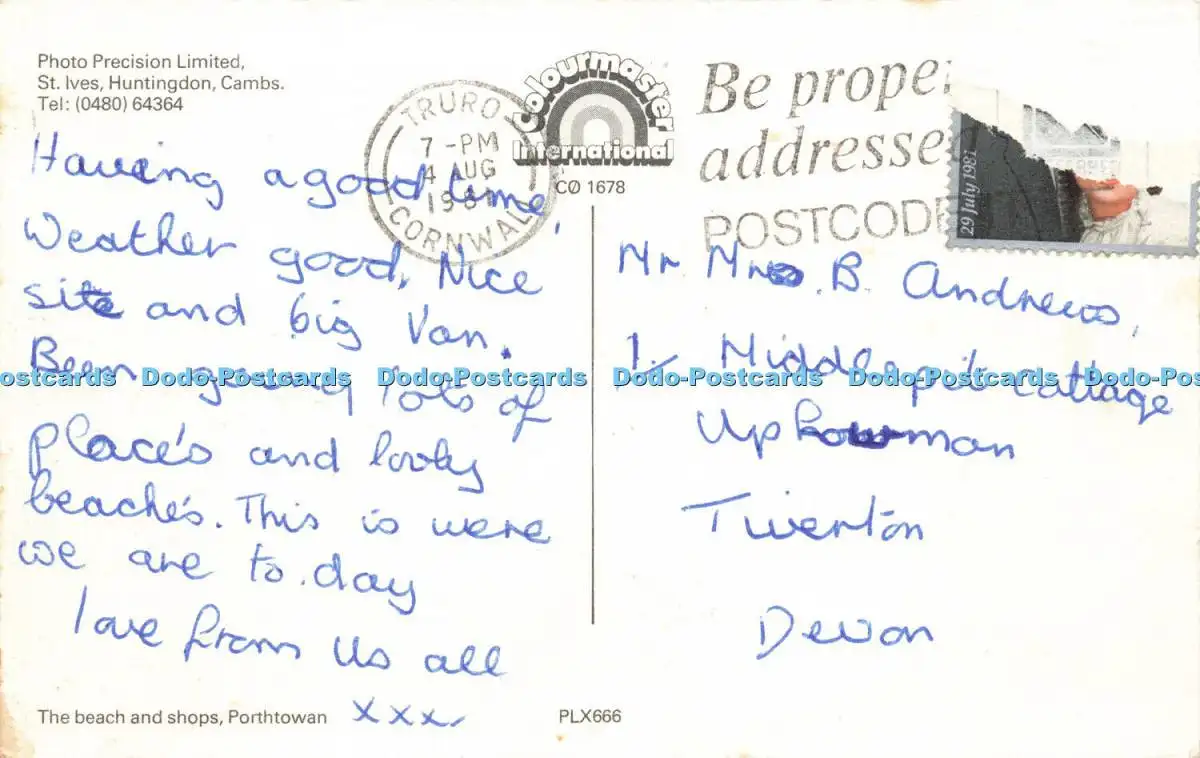 Photo Precision Limited,
St. Ives, Huntingdon, Cambs.
Tel: (0480) 64364
TRURO
7 -PM
4 AUG
198
CORNWALL
Colourmaster
International
CØ 1678
Be proper
addresse
POSTCODE
29 July 1981
Having a good time,
Weather good, Nice
site and big Van.
Been going lots of
place's and lovly
beache's. This is were
we are to.day
love from us all
xxx
Mr Mrs. B. Andrews,
1, Middlepit cottage
Uplowman
Tiverton
Devon
Dodo-Postcards Dodo-Postcards Dodo-Postcards Dodo-Postcards Dodo-Postcards Dodo-Po
The beach and shops, Porthtowan
PLX666